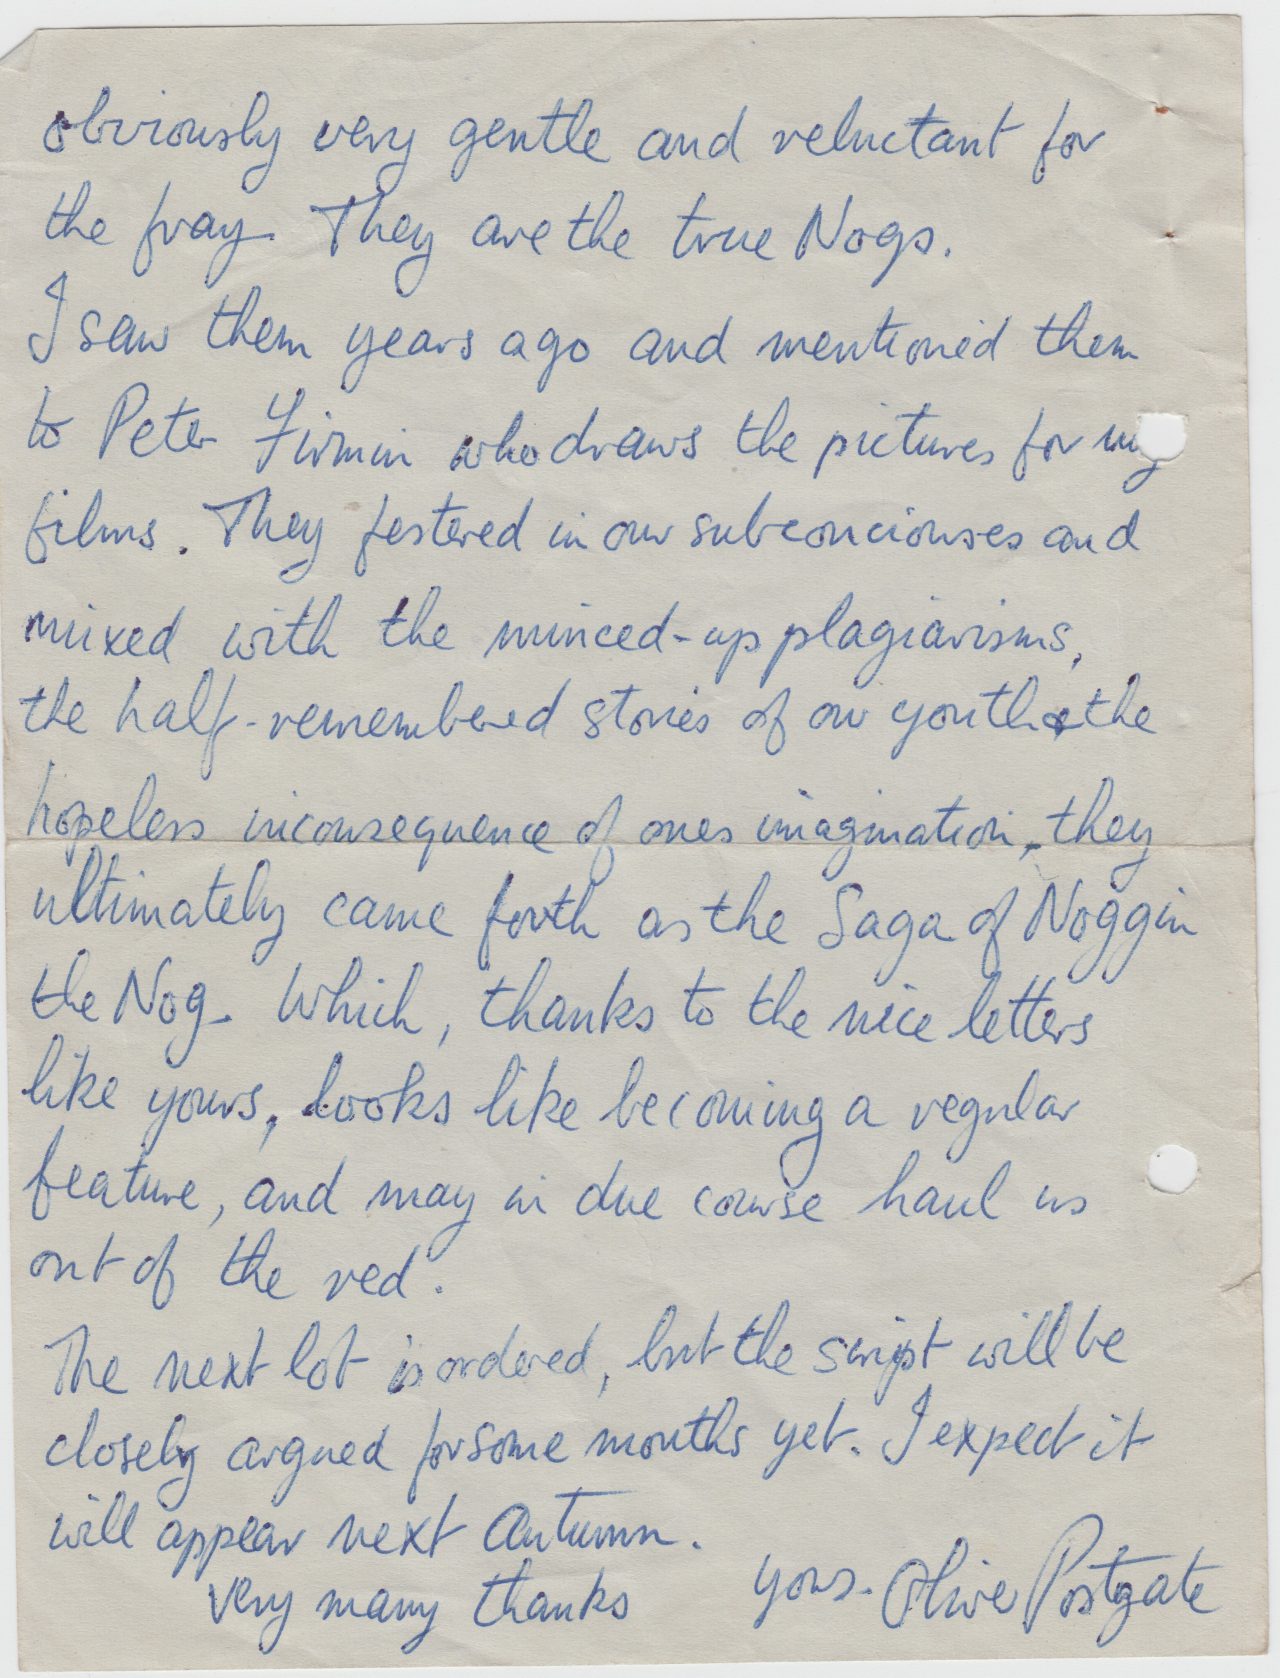 obviously very gentle and reluctant for
the fray. They are the true Nogs.
I saw them years ago and mentioned them
to Peter Firmin who draws the pictures for my
films. They festered in our subconciouses and
mixed with the minced-up plagiarisms,
the half-remembered stories of our youth & the
hopeless inconsequence of ones imagination, they
ultimately came forth as the Saga of Noggin
the Nog. Which, thanks to the nice letters
like yours, looks like becoming a regular
feature, and may in due course haul us
out of the red.
The next lot is ordered, but the script will be
closely argued for some months yet. I expect it
will appear next Autumn.
Very many thanks
yours. Oliver Postgate